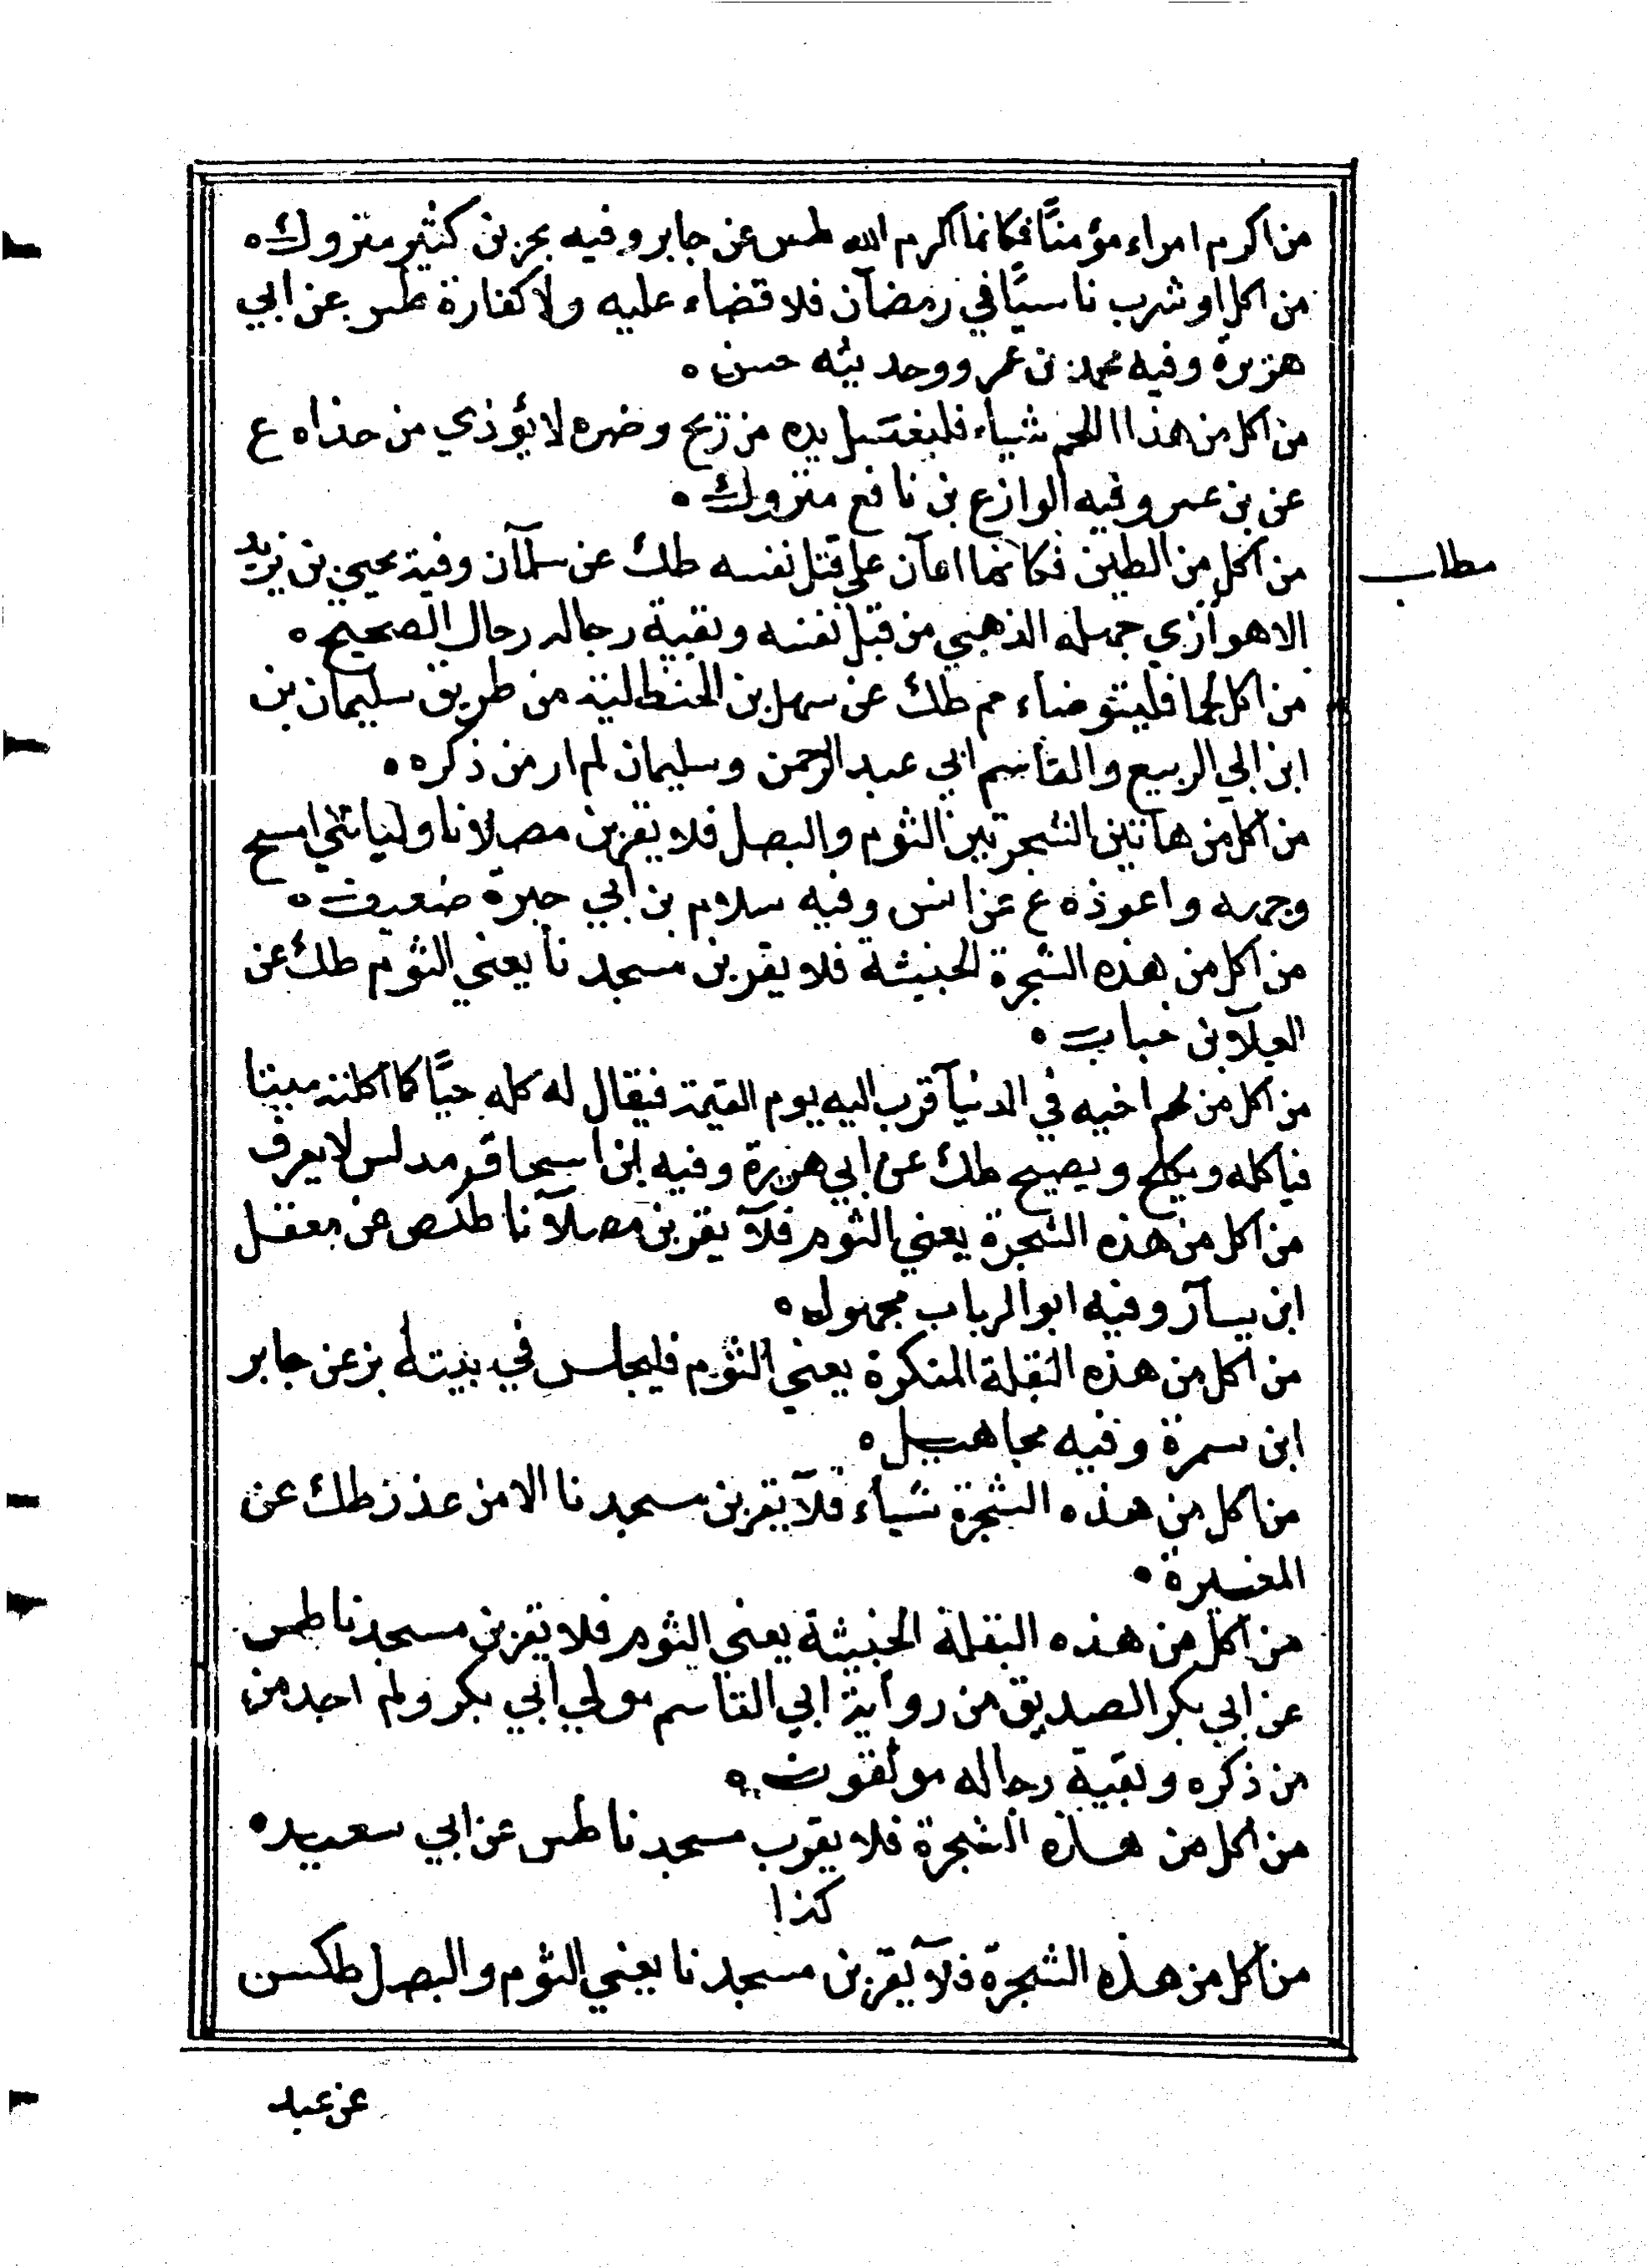 من اكرم امراء مؤمنًا فكانما اكرم الله طس عن جابر وفيه بحر بن كثير متروك ه
من اكل او شرب ناسيًا في رمضآن فلا قضاء عليه ولا كفارة طس عن ابي
هريرة وفيه محمد بن عمر ووحديثه حسن ه
من اكل من هذا اللحم شياء فليغتسل يده من ريح وضره لا يؤذي من حذاه ع
عن بن عمر وفيه الوازع بن نافع متروك ه
مطلب
من اكل من الطين فكانما اعآن علي قتل نفسه طك عن سلمآن وفيه يحيي بن يزيد
الاهوآزي جهله الذهبي من قبل نفسه وبقية رجاله رجال الصحيح ه
من اكل لحما فليتوضاء حم طك عن سهل بن الحنطلية من طريق سليمان بن
ابن ابي الربيع والقاسم ابي عبد الرحمن وسليمان لم ار من ذكره ه
من اكل من هآتين الشجرتين الثوم والبصل فلا يقربن مصلانا ولياتني امسح
وجهه واعوذه ع عن انس وفيه سلام بن ابي خبرة ضعيف ه
من اكل من هذه الشجرة الخبيثة فلا يقربن مسجدنا يعني الثوم طك عن
العلآ بن خباب ه
من اكل من لحم اخيه في الدنيآ قرب اليه يوم القيمة فيقال له كله حيًّا كما اكلته ميتا
فياكله ويكلح ويصيح طك عن ابي هريرة وفيه ابن اسحاق مدلس لا يعرف
من اكل من هذه الشجرة يعني الثوم فلآ يقربن مصلآنا طكص عن معقل
ابن يسآر وفيه ابو الرباب مجهول ه
من اكل من هذه البقلة المنكرة يعني الثوم فليجلس في بيته بز عن جابر
ابن سمرة وفيه مجاهيل ه
من اكل من هذه الشجرة شياء فلآ يقربن مسجدنا الا من عذر طك عن
المغيرة ه
من اكل من هذه البقلة الخبيثة يعني الثوم فلا يقربن مسجدنا طس
عن ابي بكر الصديق من رواية ابي القاسم مولي ابي بكر ولم اجد من
من ذكره وبقية رجاله موثقون ه
من اكل من هذه الشجرة فلا يقرب مسجدنا طس عن ابي سعيد ه
كذا
من اكل من هذه الشجرة فلآ يقربن مسجدنا يعني الثوم والبصل طكس
عن عبد